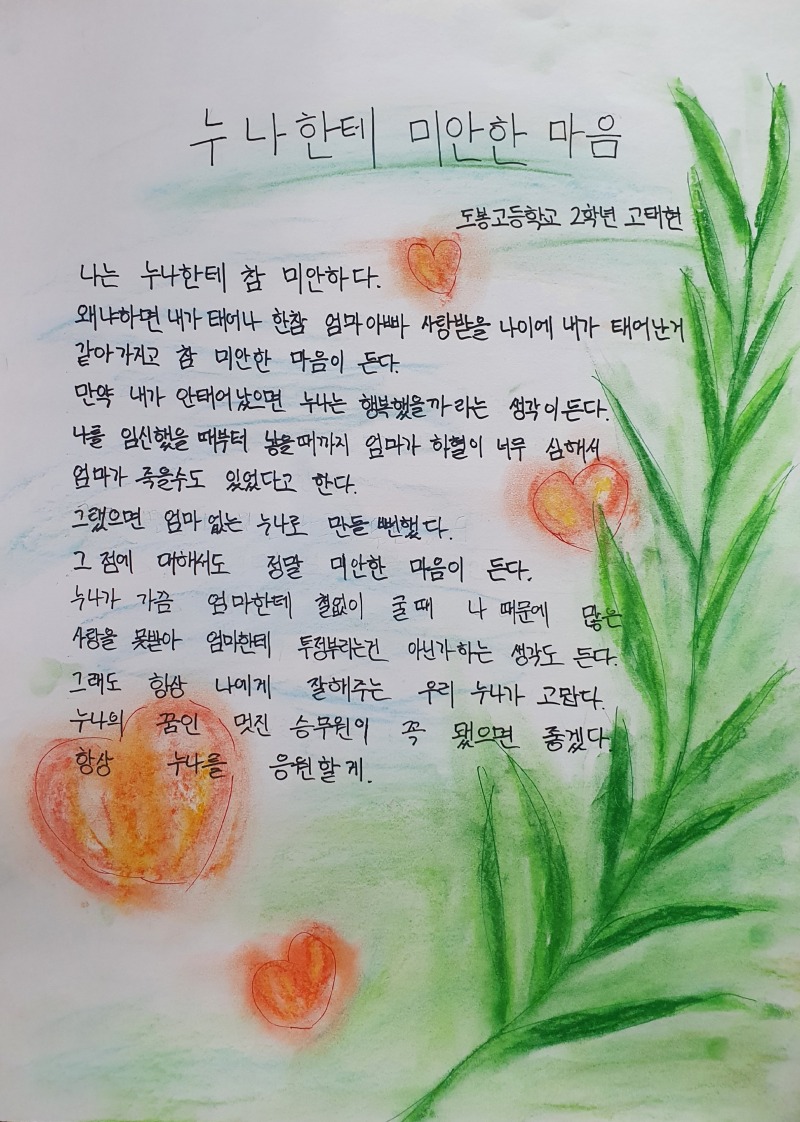 누나한테 미안한 마음
도봉고등학교 2학년 고태현
나는 누나한테 참 미안하다.
왜냐하면 내가 태어나 한참 엄마아빠 사랑받을 나이에 내가 태어난거
같아가지고 참 미안한 마음이 든다.
만약 내가 안태어났으면 누나는 행복했을까라는 생각이든다.
나를 임신했을 때부터 낳을때까지 엄마가 하혈이 너무 심해서
엄마가 죽을수도 있었다고 한다.
그랬으면 엄마 없는 누나로 만들 뻔했다.
그 점에 대해서도 정말 미안한 마음이 든다.
누나가 가끔 엄마한테 철없이 굴때 나 때문에 많은
사랑을 못받아 엄마한테 투정부리는건 아닌가하는 생각도 든다.
그래도 항상 나에게 잘해주는 우리 누나가 고맙다.
누나의 꿈인 멋진 승무원이 꼭 됐으면 좋겠다.
항상 누나를 응원할게.